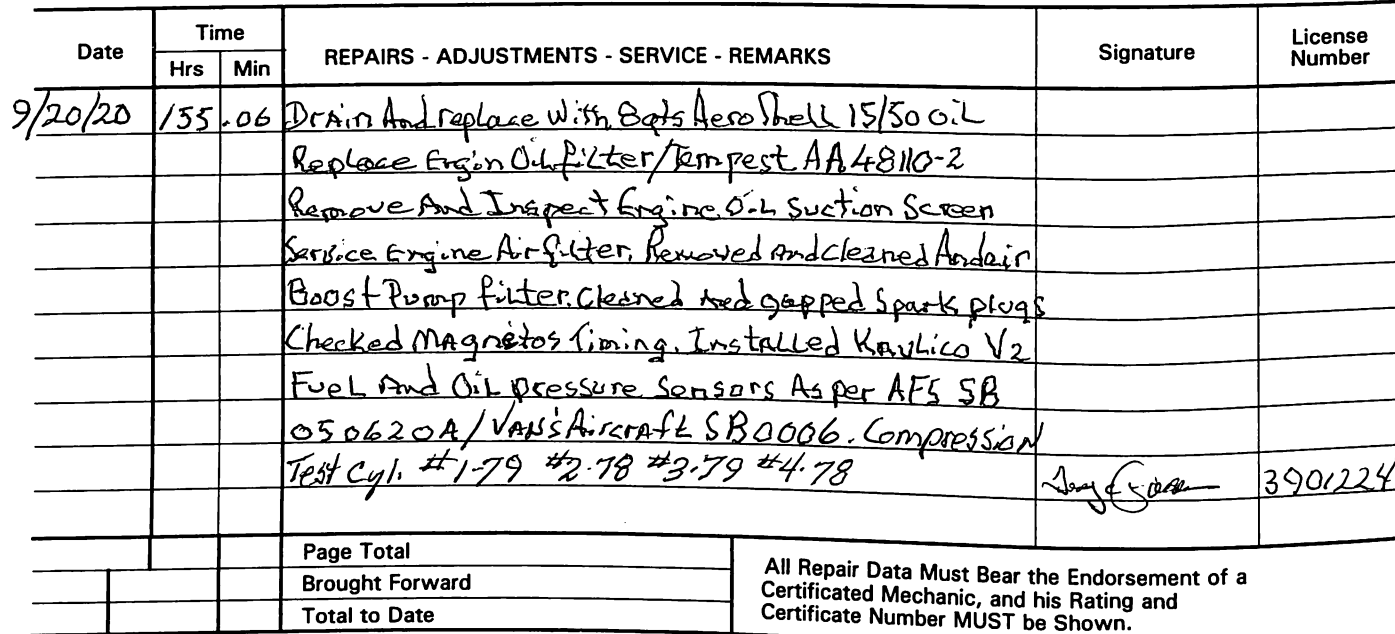 Date Time REPAIRS - ADJUSTMENTS - SERVICE - REMARKS Signature License Number
Hrs Min
9/20/20 155 .06 Drain And replace With 8qts AeroShell 15/50 oiL
Replace Engin Oil filter/Tempest AA48110-2
Remove And Inspect Engine Oil Suction Screen
Service Engine Air filter, Removed And Cleaned Andair
Boost Pump filter. Cleaned And gapped Spark plugs
Checked Magnetos Timing. Installed Kavlico V2
Fuel And Oil pressure Sensors As per AFS SB
050620A/VAN'S Aircraft SB0006. Compression
Test Cyl. #1-79 #2-78 #3-79 #4-78
3901224
Page Total
Brought Forward
Total to Date
All Repair Data Must Bear the Endorsement of a
Certificated Mechanic, and his Rating and
Certificate Number MUST be Shown.